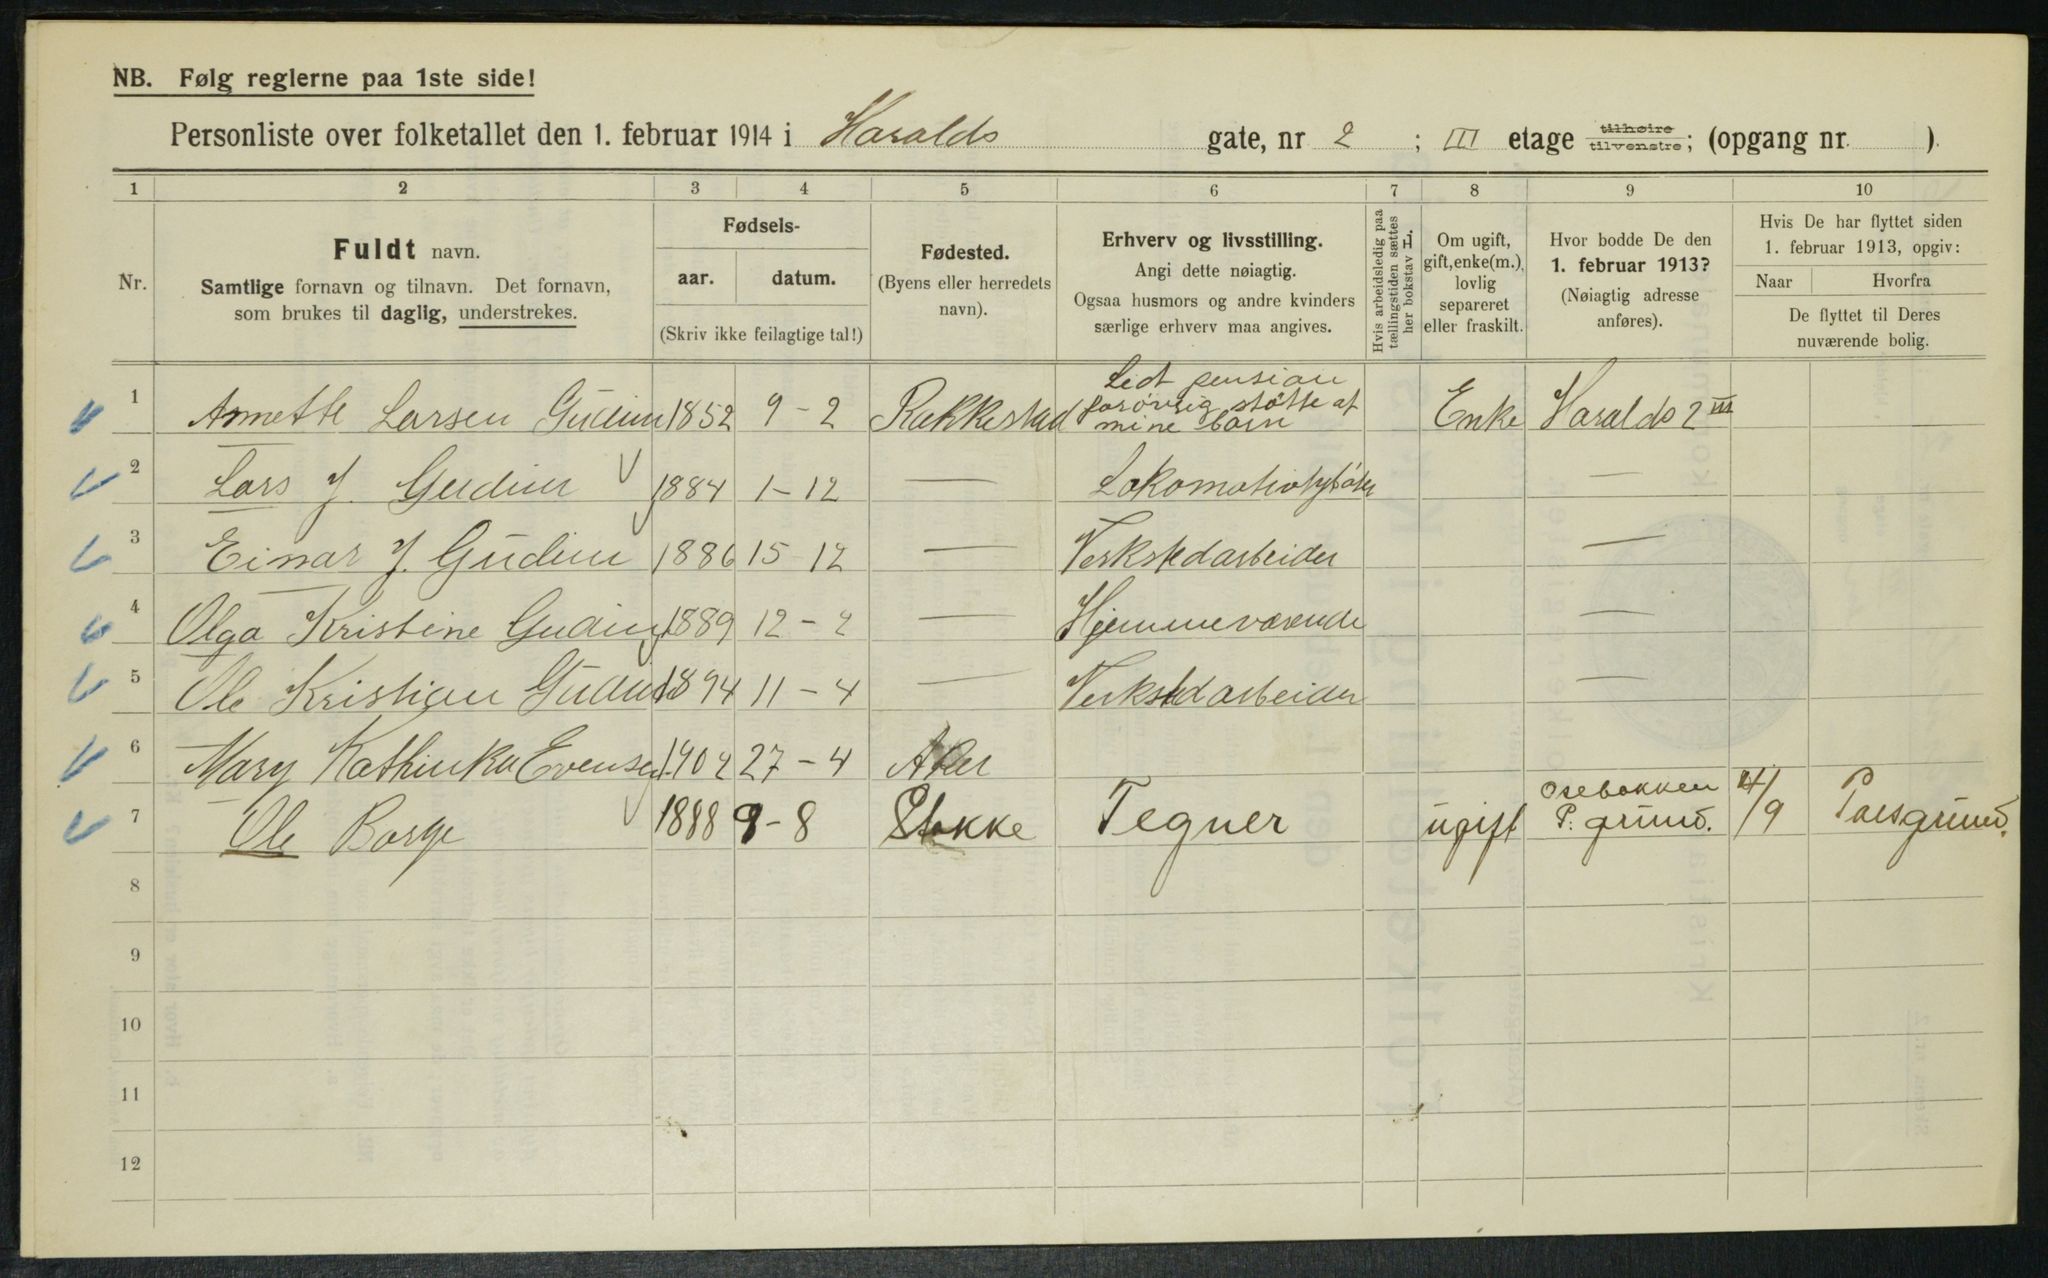 NB. Følg reglerne paa 1ste side!
Personliste over folketallet den 1. februar 1914 i Haralds gate, nr 2 ; III etage tilhøire tilvenstre; (opgang nr. ).
1 2 3 4 5 6 7 8 9 10
Nr.
Fuldt navn.
Samtlige fornavn og tilnavn. Det fornavn,
som brukes til daglig, understrekes.
Fødsels-
aar. datum.
(Skriv ikke feilagtige tal!)
Fødested.
(Byens eller herredets
navn).
Erhverv og livsstilling.
Angi dette nøiagtig.
Ogsaa husmors og andre kvinders
særlige erhverv maa angives.
Hvis arbeidsledig paa
tællingstiden sættes
her bokstav L.
Om ugift,
gift, enke(m.),
lovlig
separeret
eller fraskilt.
Hvor bodde De den
1. februar 1913?
(Nøiagtig adresse
anføres).
Hvis De har flyttet siden
1. februar 1913, opgiv:
Naar Hvorfra
De flyttet til Deres
nuværende bolig.
1 Annette Larsen Gudim 1852 9-2 Rakkestad Lidt pension forøvrig støtte af mine barn Enke Haralds 2 III
2 Lars J. Gudim 1884 1-12 — —
3 Einar J. Gudim 1886 15-12 — Verkstedarbeider —
4 Olga Kristine Gudim 1889 12-2 — Hjemmeværende —
5 Ole Kristian Gudim 1894 11-4 — Verkstedarbeider —
6 Mary Kathinka Evensen 1902 27-4 Aker
7 Ole Borge 1888 9-8 Stokke Tegner ugift Osebakken P: grund. /9 Porsgrund.
8
9
10
11
12